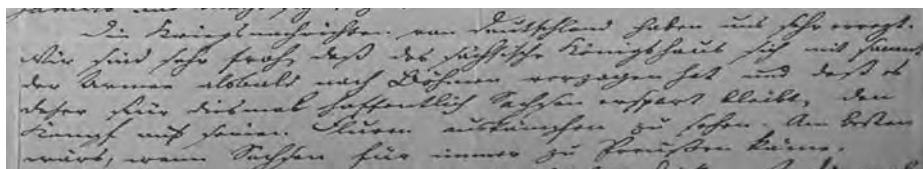 Die Kriegsnachrichten von Deutschland haben uns sehr erregt.
Wir sind sehr froh, daß das sächsische Königshaus sich mit sammt
der Armee alsbald nach Böhmen verzogen hat und daß es
daher für diesmal hoffentlich Sachsen erspart bleibt, den
Kampf auf seinen Fluren auskämpfen zu sehen. Am besten
wärs, wenn Sachsen für immer zu Preußen käme.